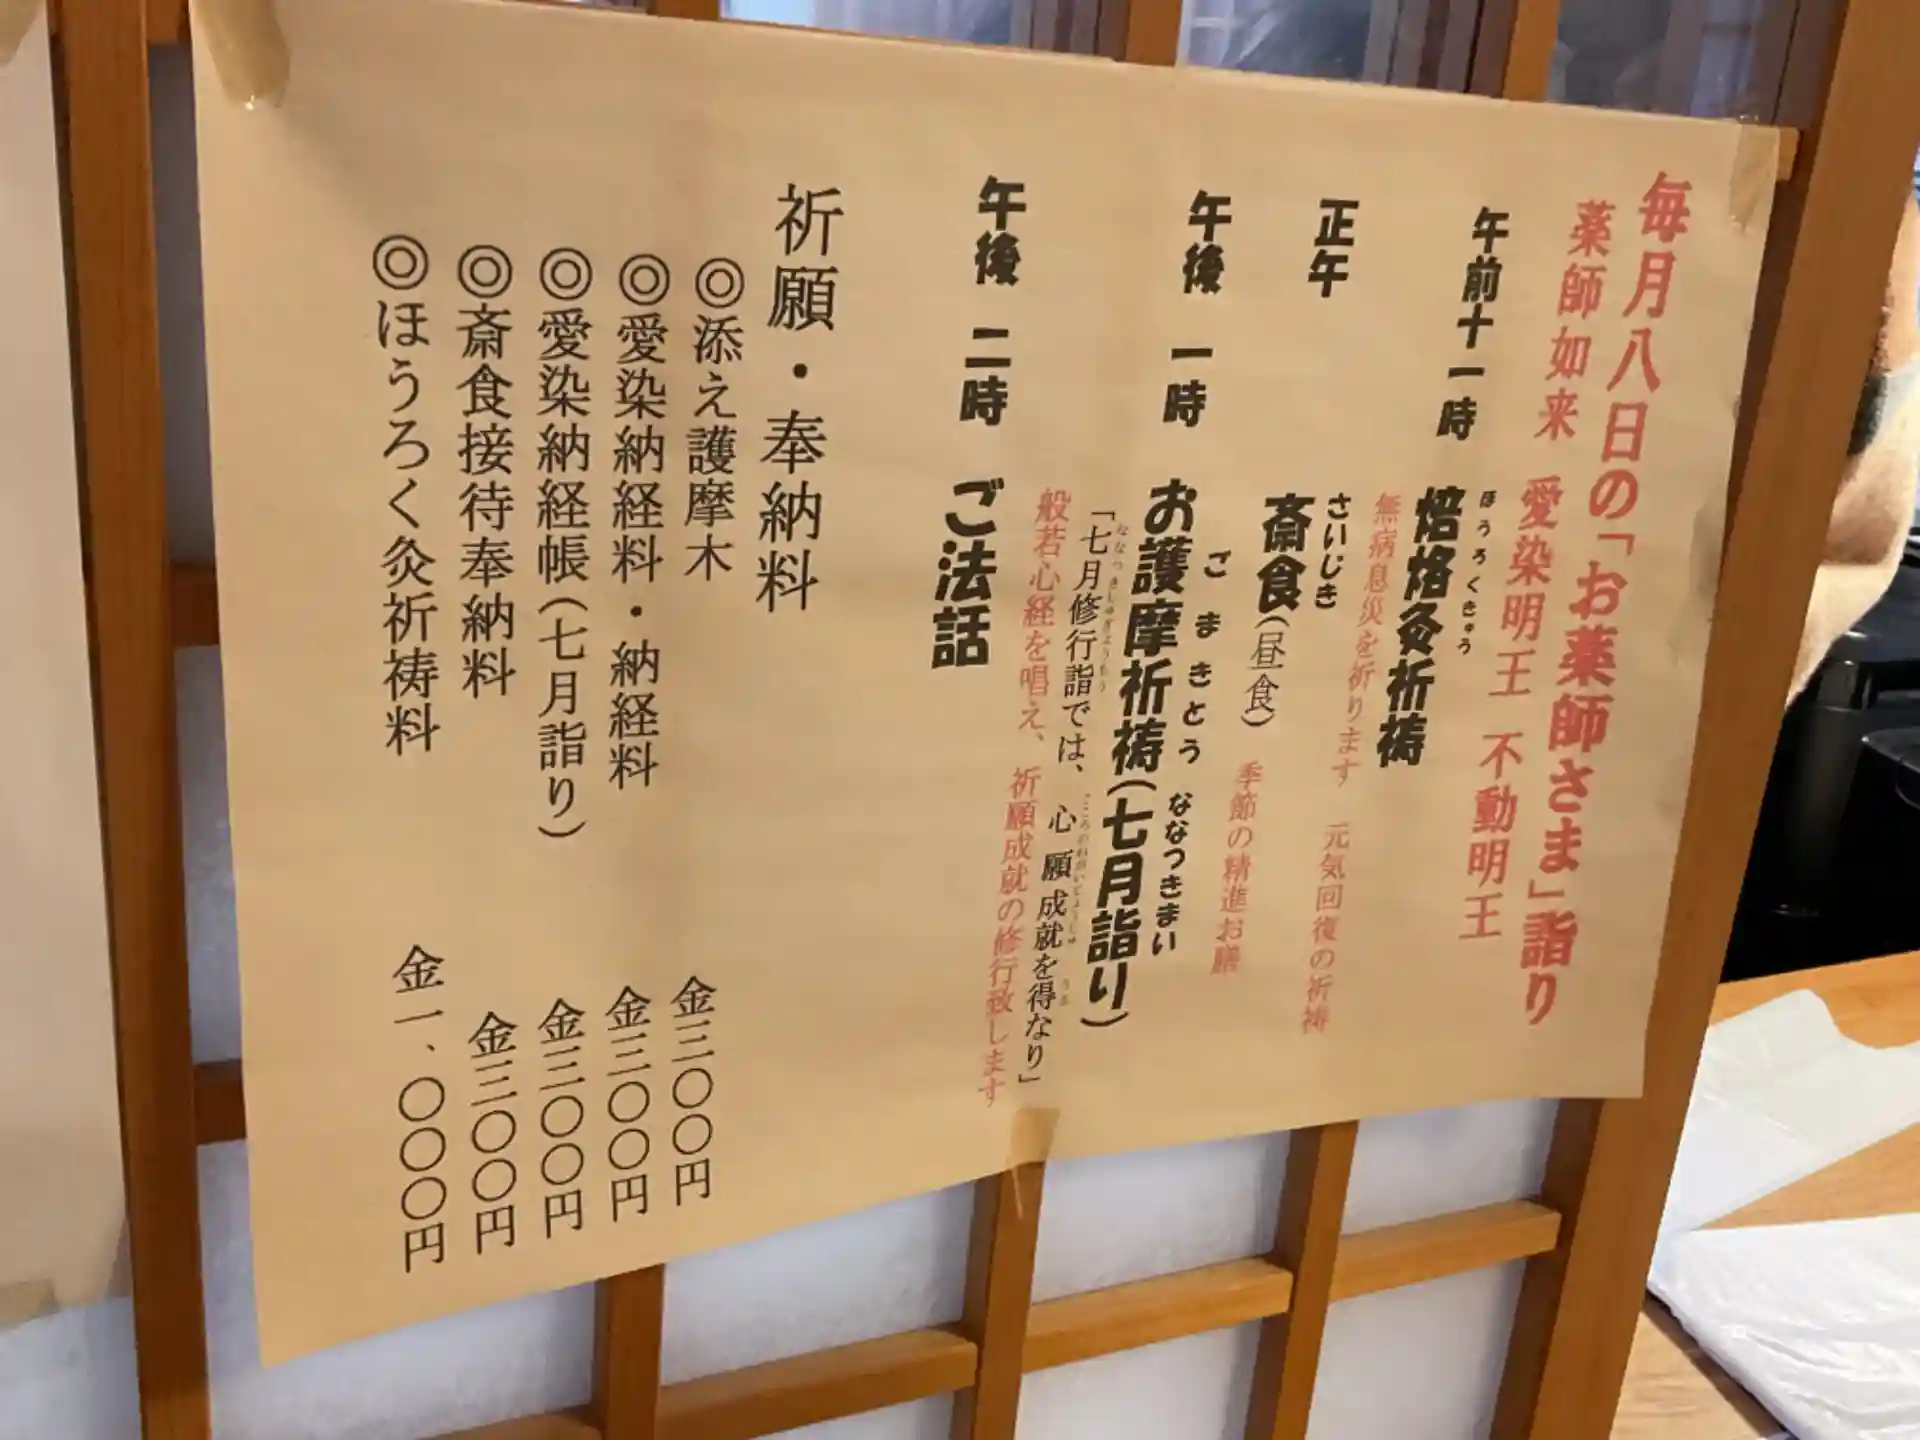 毎月八日の「お薬師さま」詣り
薬師如来 愛染明王 不動明王
午前十一時 焙烙灸祈祷
ほうろくきゅう
無病息災を祈ります 元気回復の祈祷
正午 斎食(昼食) 季節の精進お膳
さいじき
午後 一時 お護摩祈祷(七月詣り)
ごまきとう ななつきまい
「七月修行詣では、心願成就を得なり」
般若心経を唱え、祈願成就の修行致します
午後 二時 ご法話
祈願・奉納料
◎添え護摩木 金三〇〇円
◎愛染納経料・納経料 金三〇〇円
◎愛染納経帳(七月詣り) 金三〇〇円
◎斎食接待奉納料 金三〇〇円
◎ほうろく灸祈祷料 金一、〇〇〇円